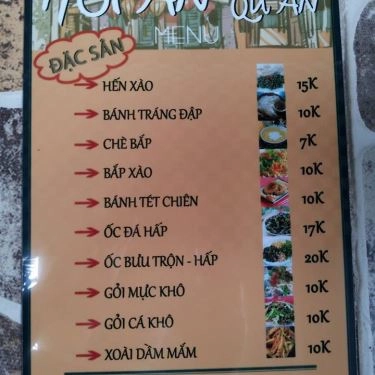 HỘI AN
QUÁN
MENU
ĐẶC SẢN
HẾN XÀO 15K
BÁNH TRÁNG ĐẬP 10K
CHÈ BẮP 7K
BẮP XÀO 10K
BÁNH TÉT CHIÊN 10K
ỐC ĐÁ HẤP 17K
ỐC BƯU TRỘN - HẤP 20K
GỎI MỰC KHÔ 10K
GỎI CÁ KHÔ 10K
XOÀI DẦM MẮM 10K